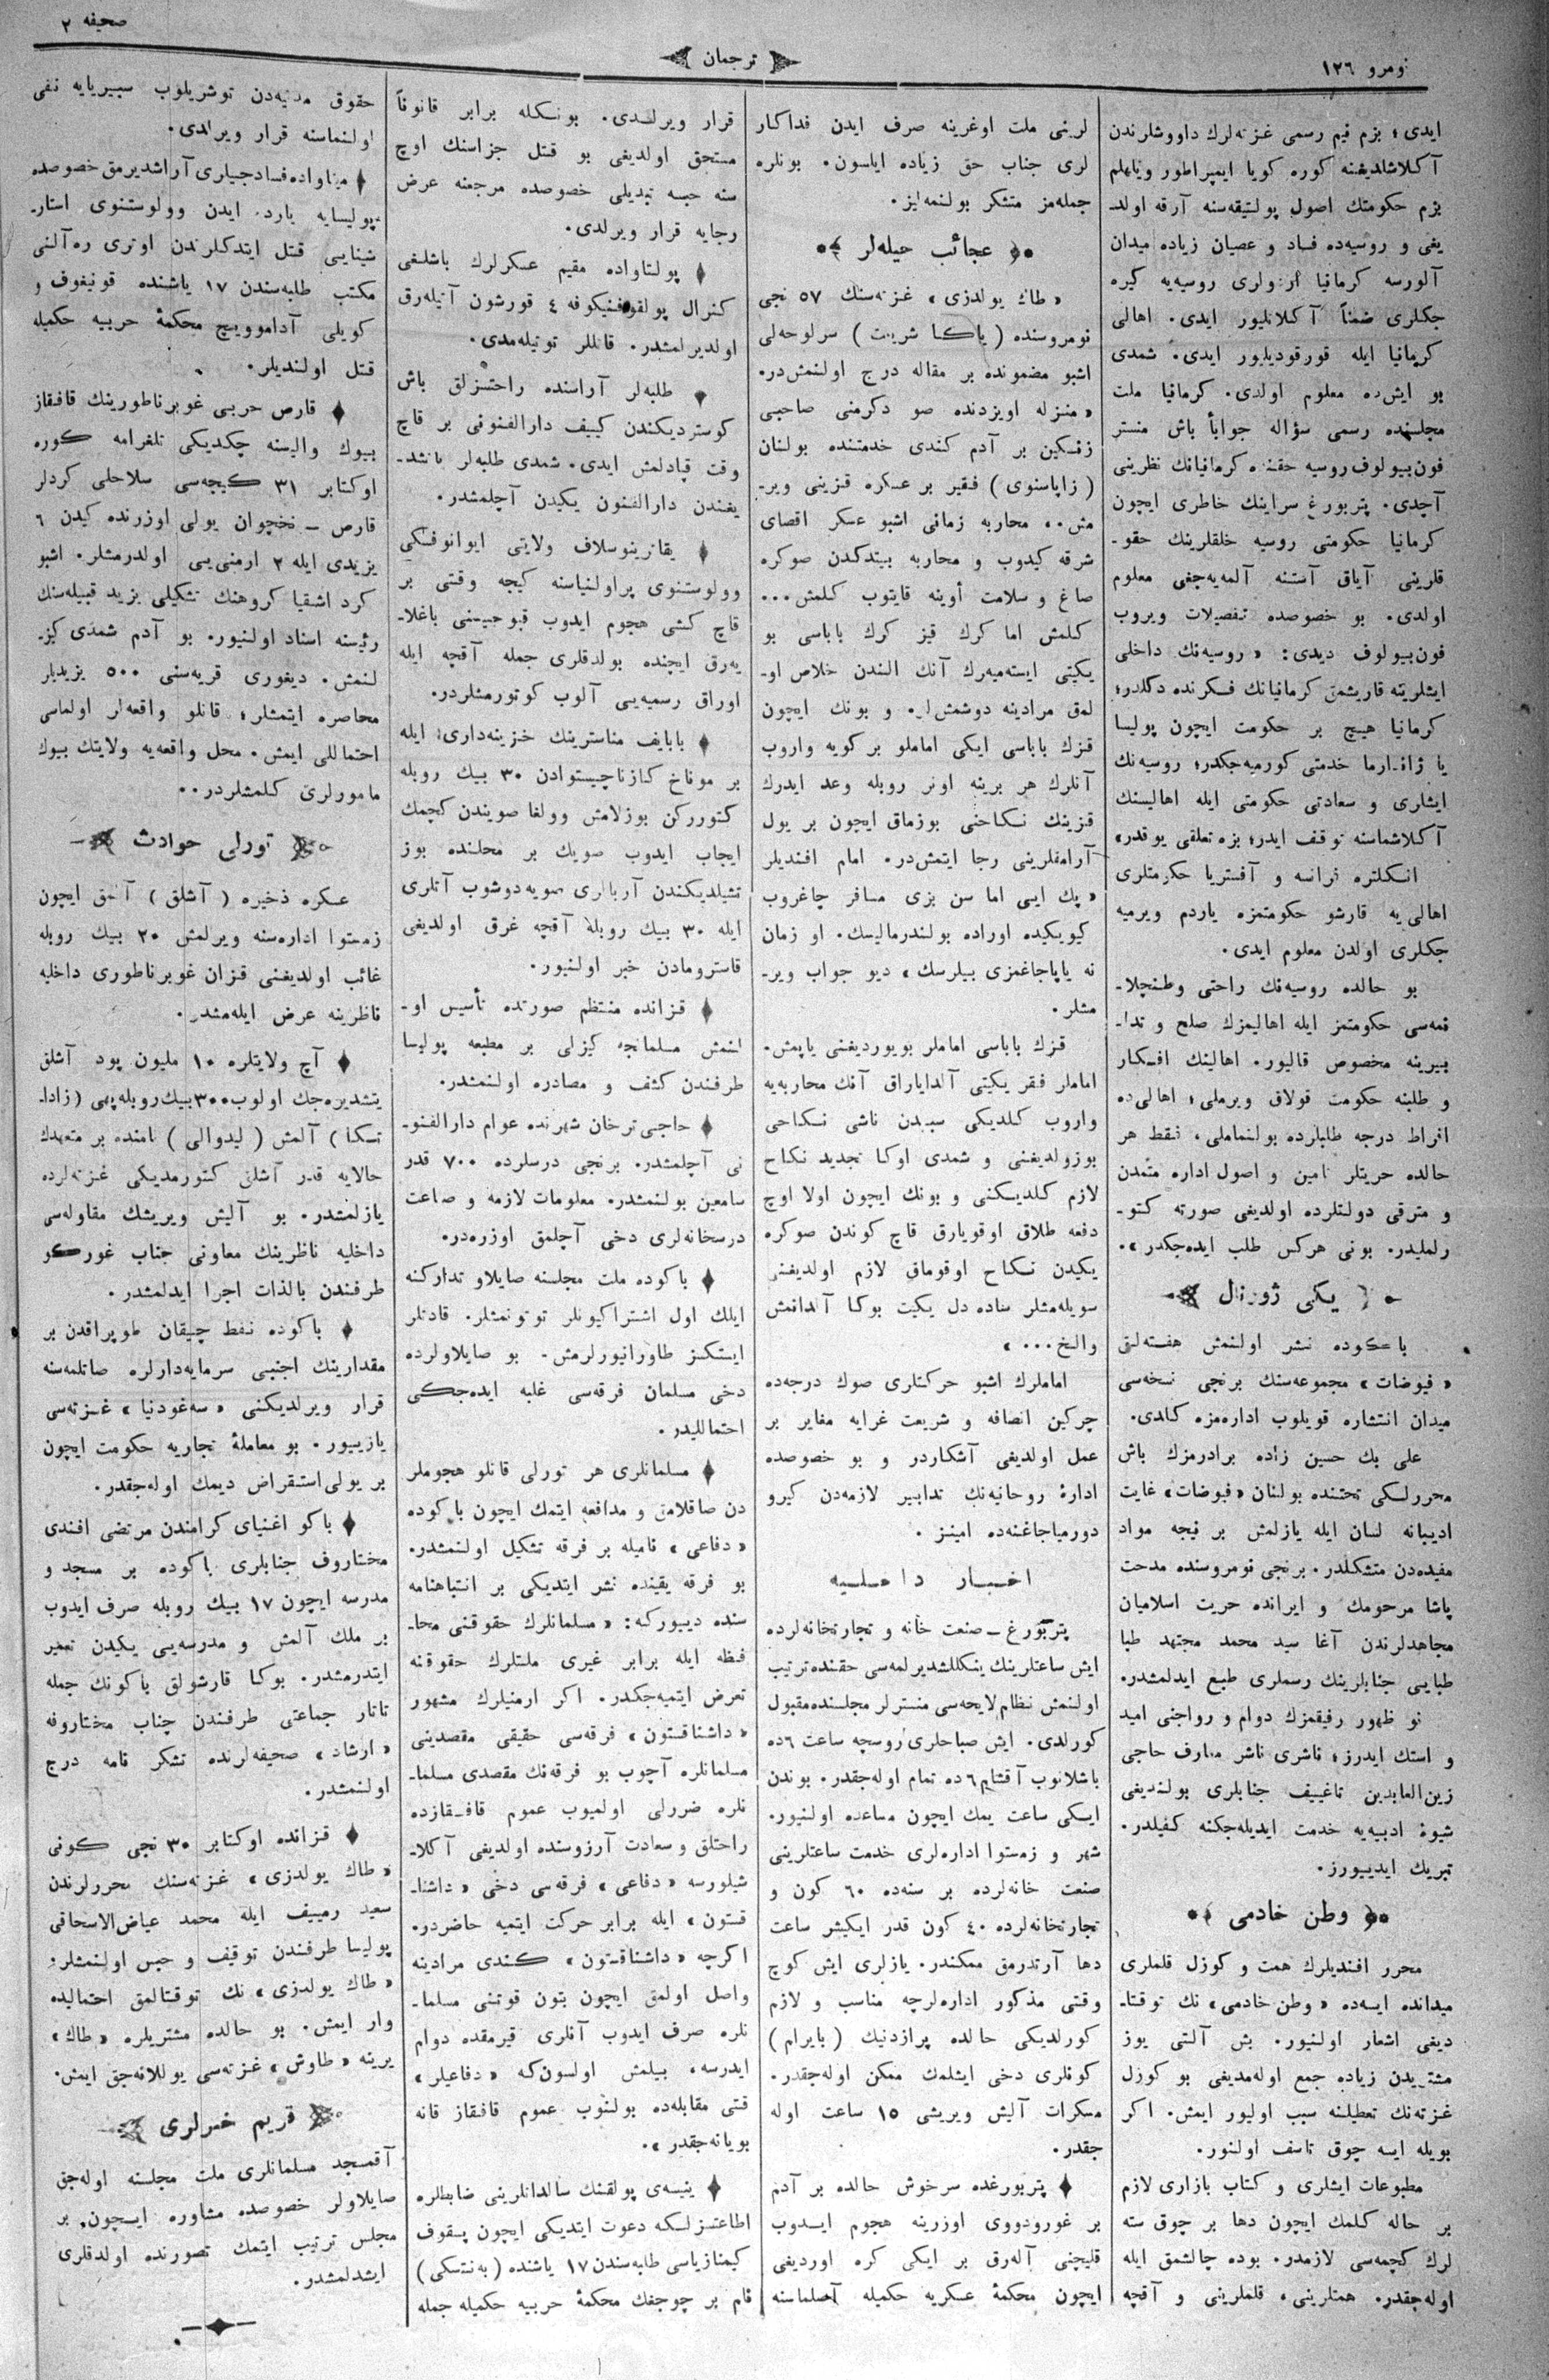 نومرو ١٢٦
ترجمان
صحیفه ٢
ایدی؛ بزم نیم رسمی غزته‌لرك داووشلرندن
آكلاشلدیغنه كوره كویا ایمپراطور ویلهلم
بزم حكومتك اصول پولتیقه‌سنه آرقه اولد-
یغی و روسیه‌ده فساد و عصیان زیاده میدان
آلورسه كرمانیا اردولری روسیه‌یه كیره
جكلری ضمناً آكلانلیور ایدی. اهالی
كرمانیا ایله قورقودیلیور ایدی. شمدی
بو ایش‌ده معلوم اولدی. كرمانیا ملت
مجلسنده رسمی سؤاله جواباً باش منستر
فون‌بیولوف روسیه حقنده كرمانیانك نظرینی
آچدی. پتربورغ سراینك خاطری ایچون
كرمانیا حكومتی روسیه خلقلرینك حقو-
قلرینی آیاق آستنه آلمه‌یه‌جغی معلوم
اولدی. بو خصوصده تفصیلات ویروب
فون‌بیولوف دیدی: «روسیه‌نك داخلی
ایشلرینه قاریشمق كرمانیانك فكرنده دكلدر؛
كرمانیا هیچ بر حكومت ایچون پولیسا
یا ژاندارما خدمتی كورمیه‌جكدر؛ روسیه‌نك
ایشاری و سعادتی حكومتی ایله اهالیسنك
آكلاشماسنه توقف ایدر؛ بزه تعلقی یوقدر»
انكلتره فرانسه و آفستریا حكومتلری
اهالی‌یه قارشو حكومتمزه یاردم ویرمیه
جكلری اولدن معلوم ایدی.
بو حالده روسیه‌نك راحتی وطنچلا-
نمه‌سی حكومتمز ایله اهالیمزك صلح و تدا-
بیرینه مخصوص قالیور. اهالینك افكار
و طلبنه حكومت قولاق ویرملی؛ اهالی‌ده
افراط درجه طلبلرده بولنماملی، فقط هر
حالده حریتلر تامین و اصول اداره متمدن
و مترقی دولتلرده اولدیغی صورته كتو-
رلملیدر. بونی هركس طلب ایده‌جكدر».
یكی ژورنال
باكوده نشر اولنمش هفته‌لق
«فیوضات» مجموعه‌سنك برنجی نسخه‌سی
میدان انتشاره قویلوب اداره‌مزه كلدی.
علی بك حسین زاده برادرمزك باش
محررلكی تحتنده بولنان «فیوضات» غایت
ادیبانه لسان ایله یازلمش بر نیجه مواد
مفیده‌دن متشكلدر. برنجی نومروسنده مدحت
پاشا مرحومك و ایرانده حریت اسلامیان
مجاهدلرندن آغا سید محمد مجتهد طبا
طبایی جنابلرینك رسملری طبع ایدلمشدر.
نو ظهور رفیقمزك دوام و رواجنی امید
و استك ایدرز؛ ناشری ناشر معارف حاجی
زین‌العابدین تاغییف جنابلری بولندیغی
شیوهٔ ادبیه‌یه خدمت ایدیله‌جكنه كفیلدر.
تبریك ایدییورز.
وطن خادمی
محرر افندیلرك همت و كوزل قلملری
میدانده ایسه‌ده «وطن خادمی» نك توقتا-
دیغی اشعار اولنیور. بش آلتی یوز
مشتریدن زیاده جمع اوله‌مدیغی بو كوزل
غزته‌نك تعطیلنه سبب اولیور ایمش. اكر
بویله ایسه چوق تاسف اولنور.
مطبوعات ایشلری و كتاب بازاری لازم
بر حاله كلمك ایچون دها بر چوق سنه
لرك كچمه‌سی لازمدر. بوده چالشمق ایله
اوله‌جقدر. همتلرینی، قلملرینی و آقچه
لرینی ملت اوغرینه صرف ایدن فداكار
لری جناب حق زیاده ایلسون. بونلره
جمله‌مز متشكر بولنمه‌لیز.
عجائب حیله‌لر
«طاك یولدزی» غزته‌سنك ٥٧ نجی
نومروسنده (یاكا شریعت) سرلوحه‌لی
اشبو مضمونده بر مقاله درج اولنمش‌در.
«منزله اویزدنده صو دكرمنی صاحبی
زنكین بر آدم كندی خدمتنده بولنان
(زاپاسنوی) فقیر بر عسكره قزینی ویر-
مش.. محاربه زمانی اشبو عسكر اقصای
شرقه كیدوب و محاربه بیتدكدن صوكره
صاغ و سلامت أوینه قایتوب كلمش...
كلمش اما كرك قیز كرك باباسی بو
یكیتی ایسته‌میه‌رك آنك الندن خلاص او-
لمق مرادینه دوشمش‌لر. و بونك ایچون
قزك باباسی ایكی اماملو بر كویه واروب
آنلرك هر برینه اونر روبله وعد ایدرك
قزینك نكاحنی بوزماق ایچون بر یول
آرامقلرینی رجا ایتمش‌در. امام افندیلر
«پك ایی اما سن بزی مسافر چاغروب
كیویكیده اوراده بولندرمالیسك. او زمان
نه یاپاجاغمزی بیلرسك» دیو جواب ویر-
مشلر.
قزك باباسی اماملر بویوردیغنی یاپمش.
اماملر فقر یكیتی آلدایاراق آنك محاربه‌یه
واروب كلدیكی سببدن ناشی نكاحی
بوزولدیغنی و شمدی اوكا تجدید نكاح
لازم كلدیكنی و بونك ایچون اولا اوچ
دفعه طلاق اوقویارق قاچ كوندن صوكره
یكیدن نكاح اوقوماق لازم اولدیغنی
سویله‌مشلر ساده دل یكیت بوكا آلدانمش
والخ...»
اماملرك اشبو حركتلری صوك درجه‌ده
چركین انصافه و شریعت غرایه مغایر بر
عمل اولدیغی آشكاردر و بو خصوصده
ادارهٔ روحانیه‌نك تدابیر لازمه‌دن كیرو
دورمیاجاغنه‌ده امینز.
اخبار داخلیه
پتربورغ — صنعت خانه و تجارتخانه‌لرده
ایش ساعتلرینك ینكللشدیرلمه‌سی حقنده ترتیب
اولنمش نظام لایحه‌سی منسترلر مجلسنده مقبول
كورلدی. ایش صباحلری روسچه ساعت ٦ده
باشلانوب آقشام ٦ده تمام اوله‌جقدر. بوندن
ایكی ساعت یمك ایچون مساعده اولنیور.
شهر و زمستوا اداره‌لری خدمت ساعتلرینی
صنعت خانه‌لرده بر سنه‌ده ٦٠ كون و
تجارتخانه‌لرده ٤٠ كون قدر ایكیشر ساعت
دها آرتدرمق ممكندر. یازلری ایش كوچ
وقتی مذكور اداره‌لرچه مناسب و لازم
كورلدیكی حالده پرازدنیك (بایرام)
كونلری دخی ایشلمك ممكن اوله‌جقدر.
مسكرات آلیش ویریشی ١٥ ساعت اوله
جقدر.
پتربورغده سرخوش حالده بر آدم
بر غورودووی اوزرینه هجوم ایدوب
قلیچنی آله‌رق بر ایكی كره اوردیغی
ایچون محكمهٔ عسكریه حكمیله آصلماسنه
قرار ویرلدی. بونكله برابر قانوناً
مستحق اولدیغی بو قتل جزاسنك اوچ
سنه حبسه تبدیلی خصوصده مرجعنه عرض
رجایه قرار ویرلدی.
پولتاواده مقیم عسكرلرك باشلغی
كنرال پولقوفنیكوفه ٤ قورشون آتیله‌رق
اولدیرلمشدر. قاتللر توتیله‌مدی.
طلبه‌لر آراسنده راحتسزلق باش
كوستردیكندن كییف دارالفنونی بر قاچ
وقت قپادلمش ایدی. شمدی طلبه‌لر یانشد-
یغندن دارالفنون یكیدن آچلمشدر.
یقاترینوسلاف ولایتی ایوانوفسكی
وولوستنوی پراولنیاسنه كیجه وقتی بر
قاچ كشی هجوم ایدوب قبوجیسنی باغلا-
یه‌رق ایچنده بولدقلری جمله آقچه ایله
اوراق رسمیه‌یی آلوب كوتورمشلردر.
بابایف مناسترینك خزینه‌داری ایله
بر موناخ كازناچیستوادن ٣٠ بیك روبله
كتوررکن بوزلامش وولغا صویندن كچمك
ایجاب ایدوب صویك بر محلنده بوز
تشیلدیكندن آربالری صویه دوشوب آتلری
ایله ٣٠ بیك روبله آقچه غرق اولدیغی
قاسترومادن خبر اولنیور.
قزانده منتظم صورتده تأسیس او-
لنمش مسلمانجه كیزلی بر مطبعه پولیسا
طرفندن كشف و مصادره اولنمشدر.
حاجی‌ترخان شهرنده عوام دارالفنو-
نی آچلمشدر. برنجی درسلرده ٧٠٠ قدر
سامعین بولنمشدر. معلومات لازمه و صناعت
درسخانه‌لری دخی آچلمق اوزره‌در.
باكوده ملت مجلسنه صایلاو تداركنه
ایلك اول اشتراكیونلر توتونمشلر. قادتلر
ایستكسز طاورانیورلرمش. بو صایلاولرده
دخی مسلمان فرقه‌سی غلبه ایده‌جكی
احتماللیدر.
مسلمانلری هر تورلی قانلو هجوملر
دن صاقلامق و مدافعه ایتمك ایچون باكوده
«دفاعی» نامیله بر فرقه تشكیل اولنمشدر.
بو فرقه یقینده نشر ایتدیكی بر انتباهنامه
سنده دییوركه: «مسلمانلرك حقوقنی محا-
فظه ایله برابر غیری ملتلرك حقوقنه
تعرض ایتمیه‌جكدر. اكر ارمنیلرك مشهور
«داشناقستون» فرقه‌سی حقیقی مقصدینی
مسلمانلره آچوب بو فرقه‌نك مقصدی مسلما-
نلره ضررلی اولمیوب عموم قافقازده
راحتلق و سعادت آرزوسنده اولدیغی آكلا-
شیلورسه «دفاعی» فرقه‌سی دخی «داشنا-
قستون» ایله برابر حركت ایتمیه حاضردر.
اكرچه «داشناقستون» كندی مرادینه
واصل اولمق ایچون بتون قوتنی مسلما-
نلره صرف ایدوب آنلری قیرمقده دوام
ایدرسه، بیلمش اولسون‌كه «دفاعیلر»
قتی مقابله‌ده بولنوب عموم قافقاز قانه
بویانه‌جقدر».
ینیسه‌ی پولقنك سالداتلرینی ضابطلره
اطاعتسزلكه دعوت ایتدیكی ایچون پسقوف
كیمنازیاسی طلبه‌سندن ١٧ یاشنده
نام بر چوجغك محكمهٔ حربیه حكمیله جمله
حقوق مدنیه‌دن توشریلوب سیبریایه نفی
اولنماسنه قرار ویرلدی.
فسادجیلری آراشدیرمق خصوصده
پولیسایه یاردم ایدن وولوستنوی استار-
شینایی قتل ایتدكلرندن اوتری ره‌آلنی
مكتب طلبه‌سندن ١٧ یاشنده قونیغوف و
كویلی آداموویچ محكمهٔ حربیه حكمیله
قتل اولندیلر.
قارص حربی غوبرناطورینك قافقاز
بیوك والیسنه چكدیكی تلغرامه كوره
اوكتابر ٣١ كیجه‌سی سلاحلی كردلر
قارص — نخچوان یولی اوزرنده كیدن ٦
یزیدی ایله ٢ ارمنی‌یی اولدرمشلر. اشبو
كرد اشقیا كروهنك تشكیلی یزید قبیله‌سنك
رئیسنه اسناد اولنیور. بو آدم شمدی كیز-
لنمش. دیغوری قریه‌سنی ٥٠٠ یزیدیلر
محاصره ایتمشلر؛ قانلو واقعه‌لر اولماسی
احتماللی ایمش. محل واقعه‌یه ولایتك بیوك
مامورلری كلمشلردر..
تورلی حوادث
عسكره ذخیره (آشلق) آلمق ایچون
زمستوا اداره‌سنه ویرلمش ٢٠ بیك روبله
غائب اولدیغنی قزان غوبرناطوری داخلیه
ناظرینه عرض ایله‌مشدر.
آچ ولایتلره ١٠ ملیون پود آشلق
یتشدیره‌جك اولوب ٣٠٠ بیك روبله پهی (زادا-
تكا) آلمش (لیدوالی) نامنده بر متعهدك
حالایه قدر آشلق كتورمدیكی غزته‌لرده
یازلمشدر. بو آلیش ویریشك مقاوله‌سی
داخلیه ناظرینك معاونی جناب غوركو
طرفندن بالذات اجرا ایدلمشدر.
باكوده نفط چیقان طوپراقدن بر
مقدارینك اجنبی سرمایه‌دارلره صاتلمه‌سنه
قرار ویرلدیكنی «سه‌غودنیا» غزته‌سی
یازییور. بو معاملهٔ تجاریه حكومت ایچون
بر یولی استقراض دیمك اوله‌جقدر.
باكو اغنیای كرامندن مرتضی افندی
مختاروف جنابلری باكوده بر مسجد و
مدرسه ایچون ١٧ بیك روبله صرف ایدوب
بر ملك آلمش و مدرسه‌یی یكیدن تعمیر
ایتدرمشدر. بوكا قارشولق باكونك جمله
تاتار جماعتی طرفندن جناب مختاروفه
«ارشاد» صحیفه‌لرنده تشكر نامه درج
اولنمشدر.
قزانده اوكتابر ٣٠ نجی كونی
«طاك یولدزی» غزته‌سنك محررلرندن
سعید رمییف ایله محمد عیاض‌الاسحاقی
پولیسا طرفندن توقیف و حبس اولنمشلر؛
«طاك یولدزی» نك توقتالمق احتمالیده
وار ایمش. بو حالده مشتریلره «طاك»
یرینه «طاوش» غزته‌سی یوللانه‌جق ایمش.
قریم خبرلری
آقمسجد مسلمانلری ملت مجلسنه اوله‌جق
صایلاولر خصوصده مشاوره ایچون بر
مجلس ترتیب ایتمك تصورنده اولدقلری
ایشدلمشدر.